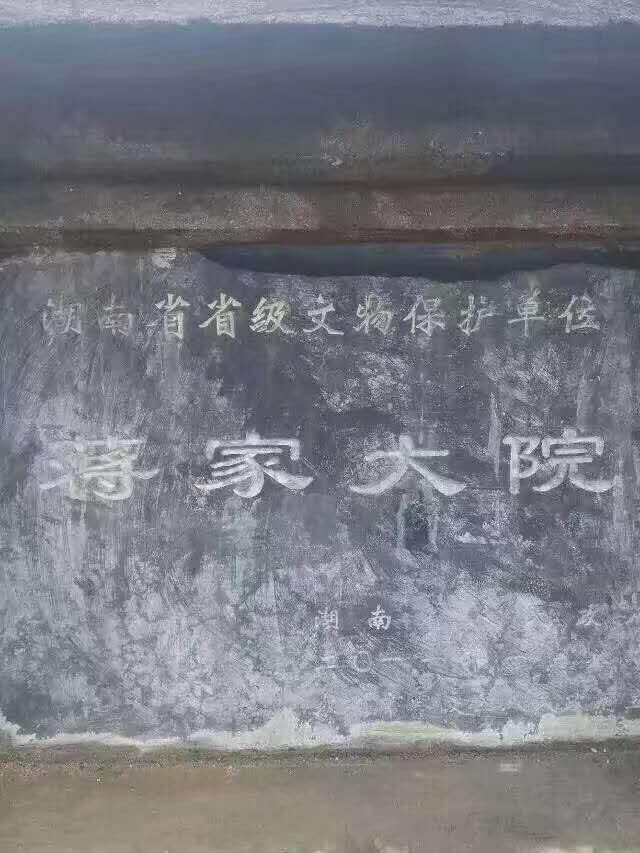 湖南省省级文物保护单位
蒋家大院
湖南
二〇一